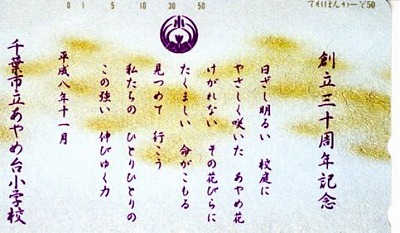 0 1 5 10 30 50
てれほんかーど50
小
創立三十周年記念
日ざし明るい 校庭に
やさしく咲いた あやめ花
けがれない その花びらに
たくましい 命がこもる
見つめて 行こう
私たちの ひとりひとりの
この強い 伸びゆく力
平成八年十一月
千葉市立あやめ台小学校